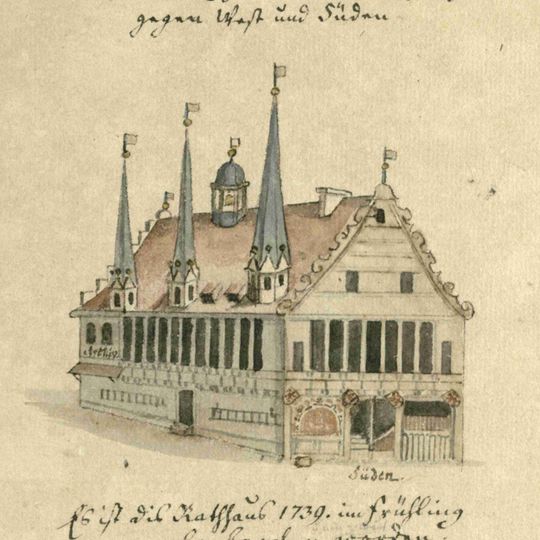 gegen West und Süden
Archiv.
Süden.
Es ist dis Rathhaus 1739. im Frühling
werden.